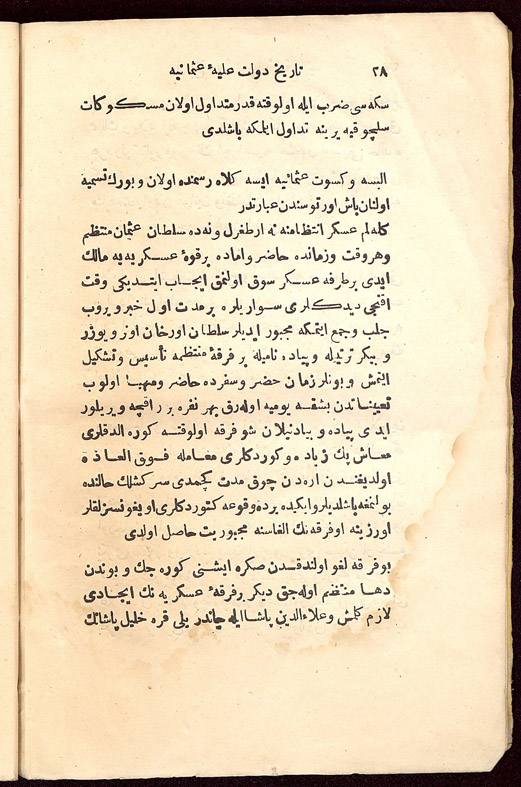 ٢٨ تاریخ دولت علیهٔ عثمانیه
سکه سی ضرب ایله اولوقته قدر متداول اولان مسکوکات
سلجوقیه یرینه تداول ایلمکه باشلدی
البسه و کسوت عثمانیه ایسه کلاه رسمنده اولان و بورك تسمیه
اولنان باش اورتوسندن عبارتدر
کله لم عسکر انتظامنه نه ارطغرل و نه ده سلطان عثمان منتظم
و هروقت و زمانده حاضر واماده برقوهٔ عسکریه یه مالك
ایدی بر طرفه عسکر سوق اولنمق ایجاب ایتدیکی وقت
اقنجی دیدکلری سواریلره بر مدت اول خبر ویروب
جلب و جمع ایتمکه مجبور ایدیلر سلطان اورخان اون و یوزر
و بیکر ترتیله و پیاده نامیله بر فرقهٔ منتظمه تأسیس و تشکیل
ایتمش و بونلر زمان حضر و سفرده حاضر ومهیا اولوب
تعییناتدن بشقه یومیه اوله رق بهر نفره بر اقچه ویریلور
ایدی پیاده و یا دنیلان شو فرقه اولوقته کوره الدقلری
معاش پك زیاده و کوردکلری معامله فوق العاده
اولدیغندن اره دن چوق مدت کچمدی سرکشلك حالنده
بولنمغه باشلدیلر وایکیده برده وقوعه کتوردکلری اویغونسزلقلر
اورزینه او فرقه نك الغاسنه مجبوریت حاصل اولدی
بوفرقه لغو اولندقدن صکره ایشنی کوره جك و بوندن
دها منتظم اوله جق دیکر بر فرقهٔ عسکریه نك ایجادی
لازم کلمش و علاءالدین پاشا ایله چاندرلی قره خلیل پاشانك